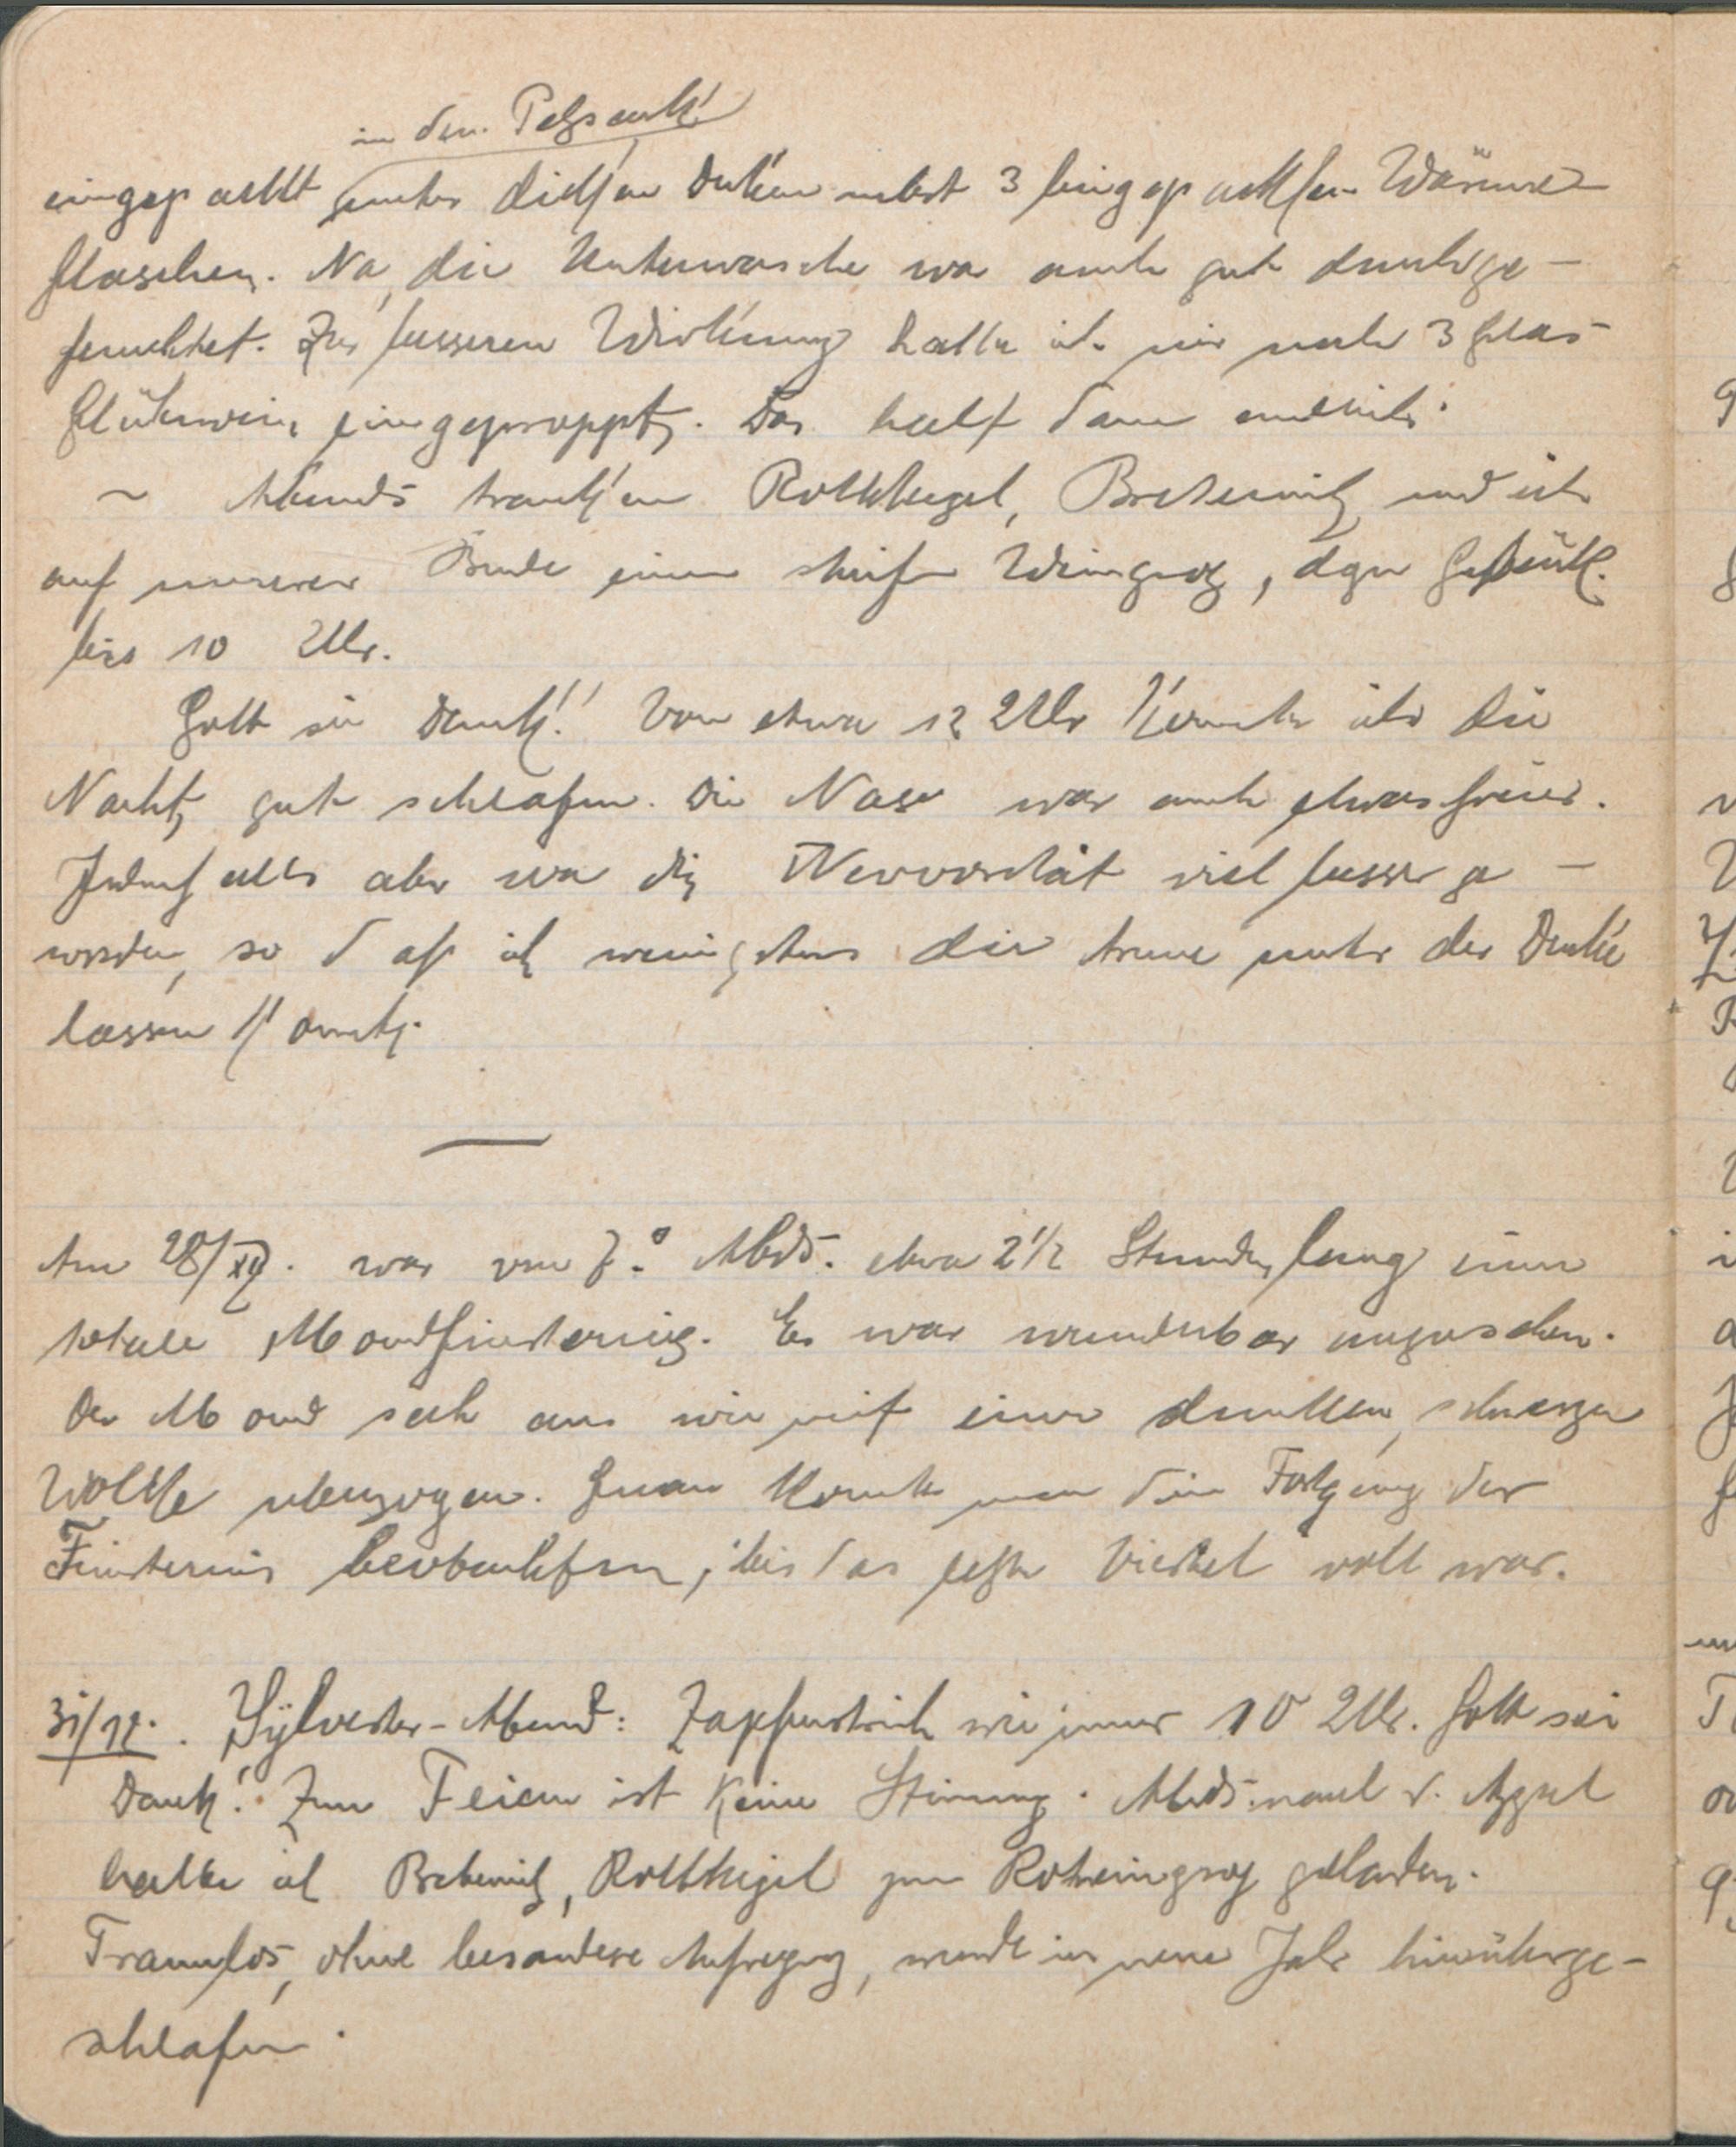 in den Pelzsack!
eingepackt, unter dicken Decken nebst 3 eingepackten Wärme-
flaschen. Na, die Unterwäsche war auch gut durchge-
feuchtet. Zur besseren Wirkung hatte ich mir noch 3 Glas
Glühwein eingeproppt. Das half dann endlich.
~ Abends tranken Rottkegel, Breternitz und ich
auf unserer Bude einen steifen Weingrog, dazu Gebäck.
bis 10 Uhr.
Gott sei Dank! Von etwa 12 Uhr konnte ich die
Nacht gut schlafen. Die Nase war auch etwas freier.
Jedenfalls aber war die Nervosität viel besser ge-
worden, so daß ich wenigstens die Arme unter der Decke
lassen konnte.
Am 28/XII. war von Abds. etwa 2 1/2 Stunden lang eine
totale Mondfinsternis. Es war wunderbar anzusehen.
Der Mond sah aus wie mit einer dunklen, schwarzen
Wolke überzogen. Genau konnte man den Fortgang der
Finsternis beobachten, bis das letzte Viertel voll war.
31/12. Sylvester-Abend: Zapfenstreich wie immer 10 Uhr. Gott sei
Dank! Zum Feiern ist keine Stimmung. Abds. nach d. Appel
hatte ich Breternitz, Rottkegel zum Rotweingrog geladen.
Traumlos, ohne besondere Aufregung, wurde ins neue Jahr hinüberge-
schlafen.